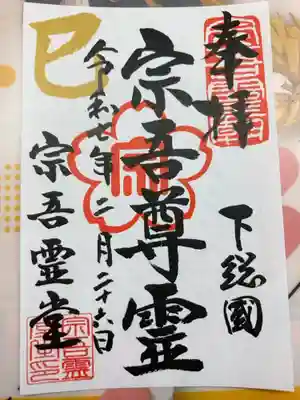 奉拝
下総國
宗吾尊霊
令和七年二月二十六日
巳
宗吾霊堂